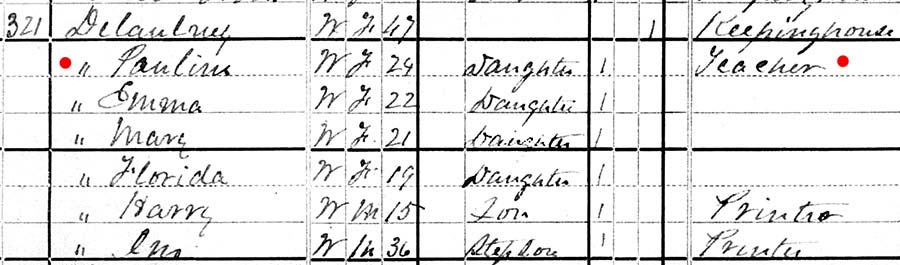 321 Delaubrey W F 47 1 Keepinghouse
" Pauline W F 24 Daughter 1 Teacher
" Emma W F 22 Daughter 1
" Mary W F 21 Daughter 1
" Florida W F 19 Daughter 1
" Harry W M 15 Son 1 Printer
" W M 36 Stepson 1 Printer